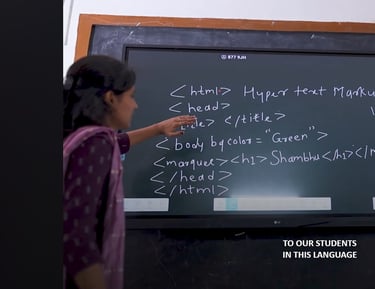 877 9JH
<html> Hyper text Marku
<head>
</title>
<body bgcolor="Green">
<marquee><h1>Shambhu</h1></m
</head>
</html>
TO OUR STUDENTS
IN THIS LANGUAGE